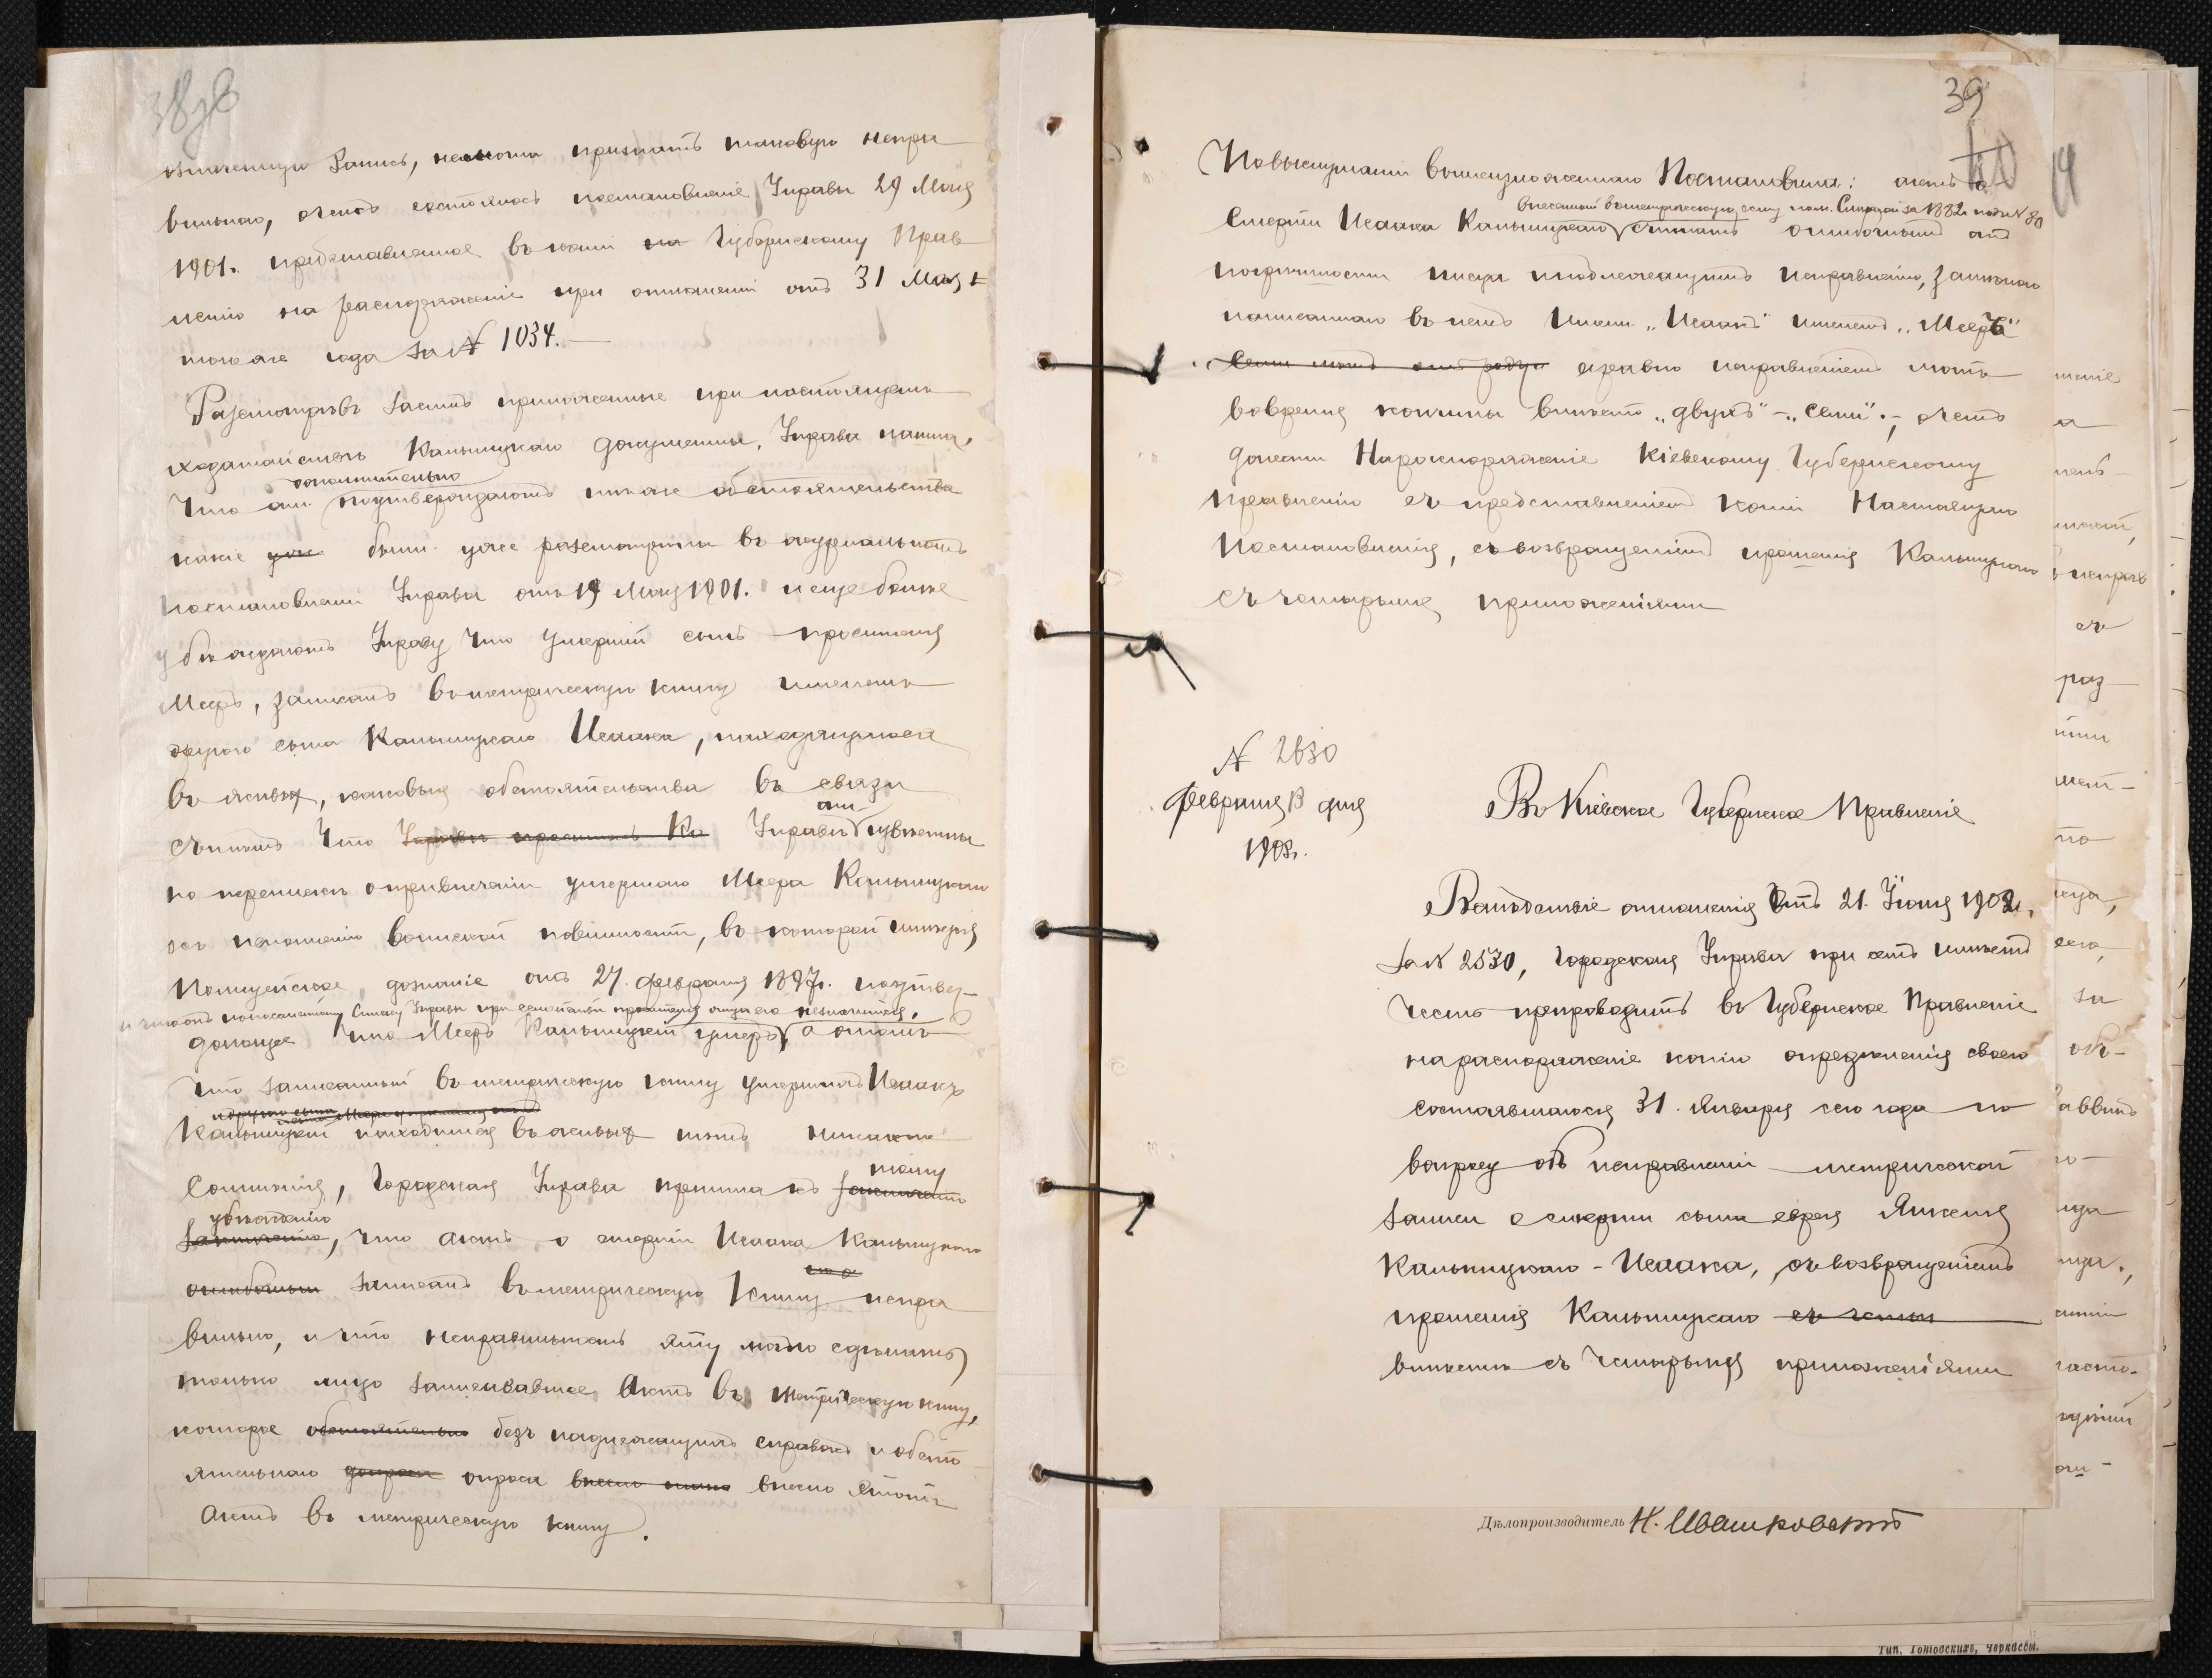 38об
означенную запись, немогла признать таковую непра
вильною, очемъ состоялось постановленіе Управы 29 Мая
1901г. представленное въ копіи на Губернскому Прав
ленію на распоряженіе при отношеніи отъ 31 Мая
того же года за № 1034.
Разсмотрѣвъ засимъ приложенные при настоящемъ
ходатайствѣ Кальницкаго документы, Управа нашла,
дополнительно
что они подтверждаютъ тѣже обстоятельства
какіе уже были уже разсмотрѣны въ журнальномъ
постановленіи Управы отъ 19 Мая 1901г. и еще болѣе
убѣждаютъ Управу что умершій сынъ просителя
Мееръ, записанъ въ метрическую книгу именемъ
другого сына Кальницкаго Исаака, находящагося
въ живыхъ, каковыя обстоятельства въ связи
съ тѣмъ что Управѣ извѣстны
они
по перепискѣ о привлеченіи умершаго Меера Кальницкаго
къ исполненію воинской повинности, въ которой имѣется
Полицейское дознаніе отъ 27 февраля 1897г. подтвер-
и что онъ по посемейному списку Управы при семействѣ просителя отца его незначится,
дающее что Мееръ Кальницкій умеръ, а отомъ
что записанный въ метрическую книгу умершимъ Исаакъ
Кальницкій находится въ живыхъ нѣтъ никакого
сомнѣнія, Городская Управа пришла къ заключенію
тому
убѣжденію
заключенію, что актъ о смерти Исаака Кальницкаго
ошибочно записанъ въ метрическую книгу непра
вильно, и что неправильность эту могло сдѣлать
только лицо записавшее Актъ въ метрическую книгу,
которое обстоятельно безъ надлежащихъ справокъ и обсто
ятельнаго допроса опроса внесло этотъ
Актъ въ метрическую книгу.
39
40
По выслушаніи вышеизложеннаго Постановила: актъ о
внесенный въ метрическую книгу за 1882г. подъ № 80
смерти Исаака Кальницкаго считать ошибочнымъ отъ
погрѣшности писца и подлежащимъ исправленію, замѣною
написаннаго въ немъ имени "Исаакъ" именемъ "Мееръ"
равно исправленіемъ лѣтъ
во время кончины вмѣсто "двухъ" - "семи"; - о чемъ
донести На распоряженіе Кіевскому Губернскому
Правленію съ представленіемъ копіи Настоящаго
Постановленія, съ возвращеніемъ прошенія Кальницкаго
съ четырьмя приложеніями
№ 2630
Февраля 13 дня
1903г.
Въ Кіевское Губернское Правленіе
Вслѣдствіе отношенія отъ 21 Іюня 1902г.
за № 2530, Городская Управа при семъ имѣетъ
честь препроводить въ Губернское Правленіе
на распоряженіе копію опредѣленія своего
состоявшагося 31 Января сего года по
вопросу объ исправленіи метрической
записи о смерти сына еврея Янкеля
Кальницкаго - Исаака, съ возвращеніемъ
прошенія Кальницкаго съ четырь
вмѣстѣ съ четырьмя приложеніями
Дѣлопроизводитель Н. Ивашковскій
Тип. Городскихъ, Черкассы.